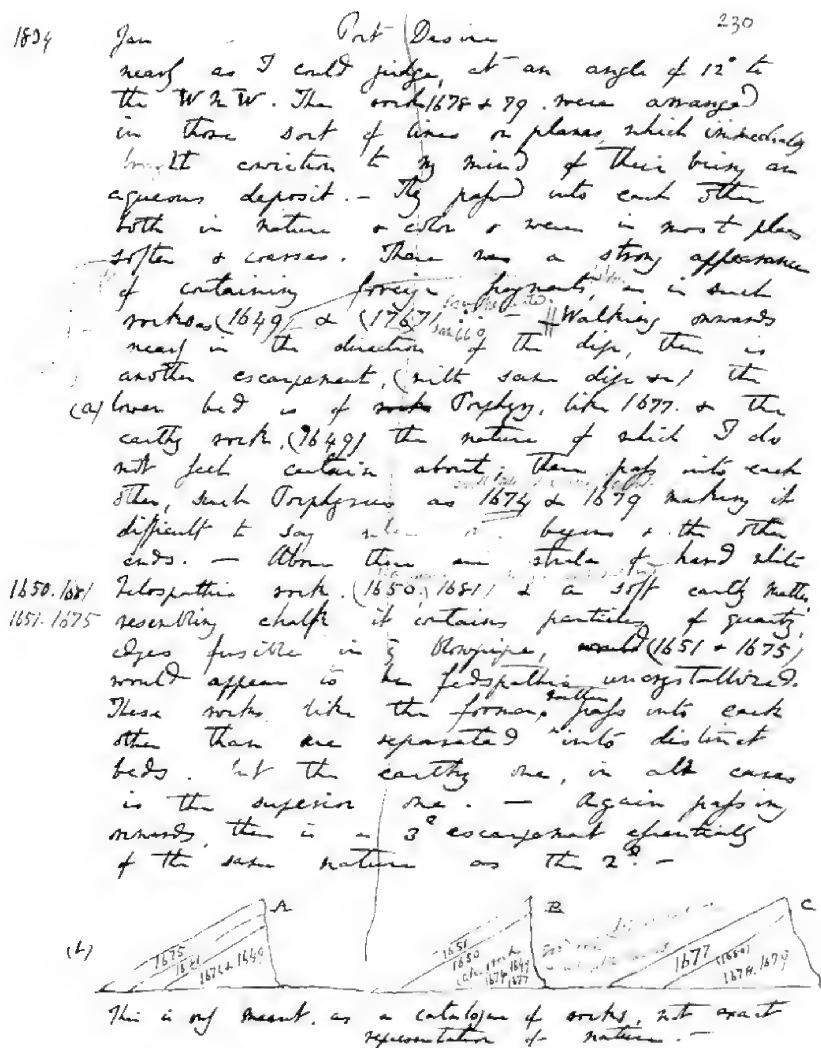 1834 Jan Port Desire 230
nearly as I could judge, at an angle of 12° to
the W N W. The rock 1678 & 79 were arranged
in those sort of lines or planes, which immediately
brought conviction to my mind of their being an
aqueous deposit. — They passed into each other
both in nature & color & were in most places
softer & coarser. There was a strong appearance
of containing foreign fragments, as in such
rocks as (1649) & (1767) — Walking onwards
nearly in the direction of the dip, there is
another escarpement, (with same dip &c) the
(a) lower bed is of Porphyry, like 1677. & the
earthy rock. (1649) the nature of which I do
not feel certain about; these pass into each
other, such Porphyries as 1674 & 1679 making it
difficult to say begins & the other
ends. — Above these are strata of hard white
1650.1681 Felospathic rock. (1650. 1681) & a soft earthy matter
1651.1675 resembling chalk it contains particles of quartz,
edges fusible in Blowpipe, (1651 & 1675)
would appear to be fedspathic uncrystallized.
These rocks like the former, rather pass into each
other than are separated into distinct
beds. but the earthy one, in all cases
is the superior one. — Again passing
onwards, there is a 3d escarpement essentially
of the same nature as the 2d. —
(b) A B C
1675 1651 1677
1681 1650 (1650)
1674 & 1649 1674 1649 1677 1678.1679
This is only meant, as a catalogue of rocks, not exact
representation of nature. —